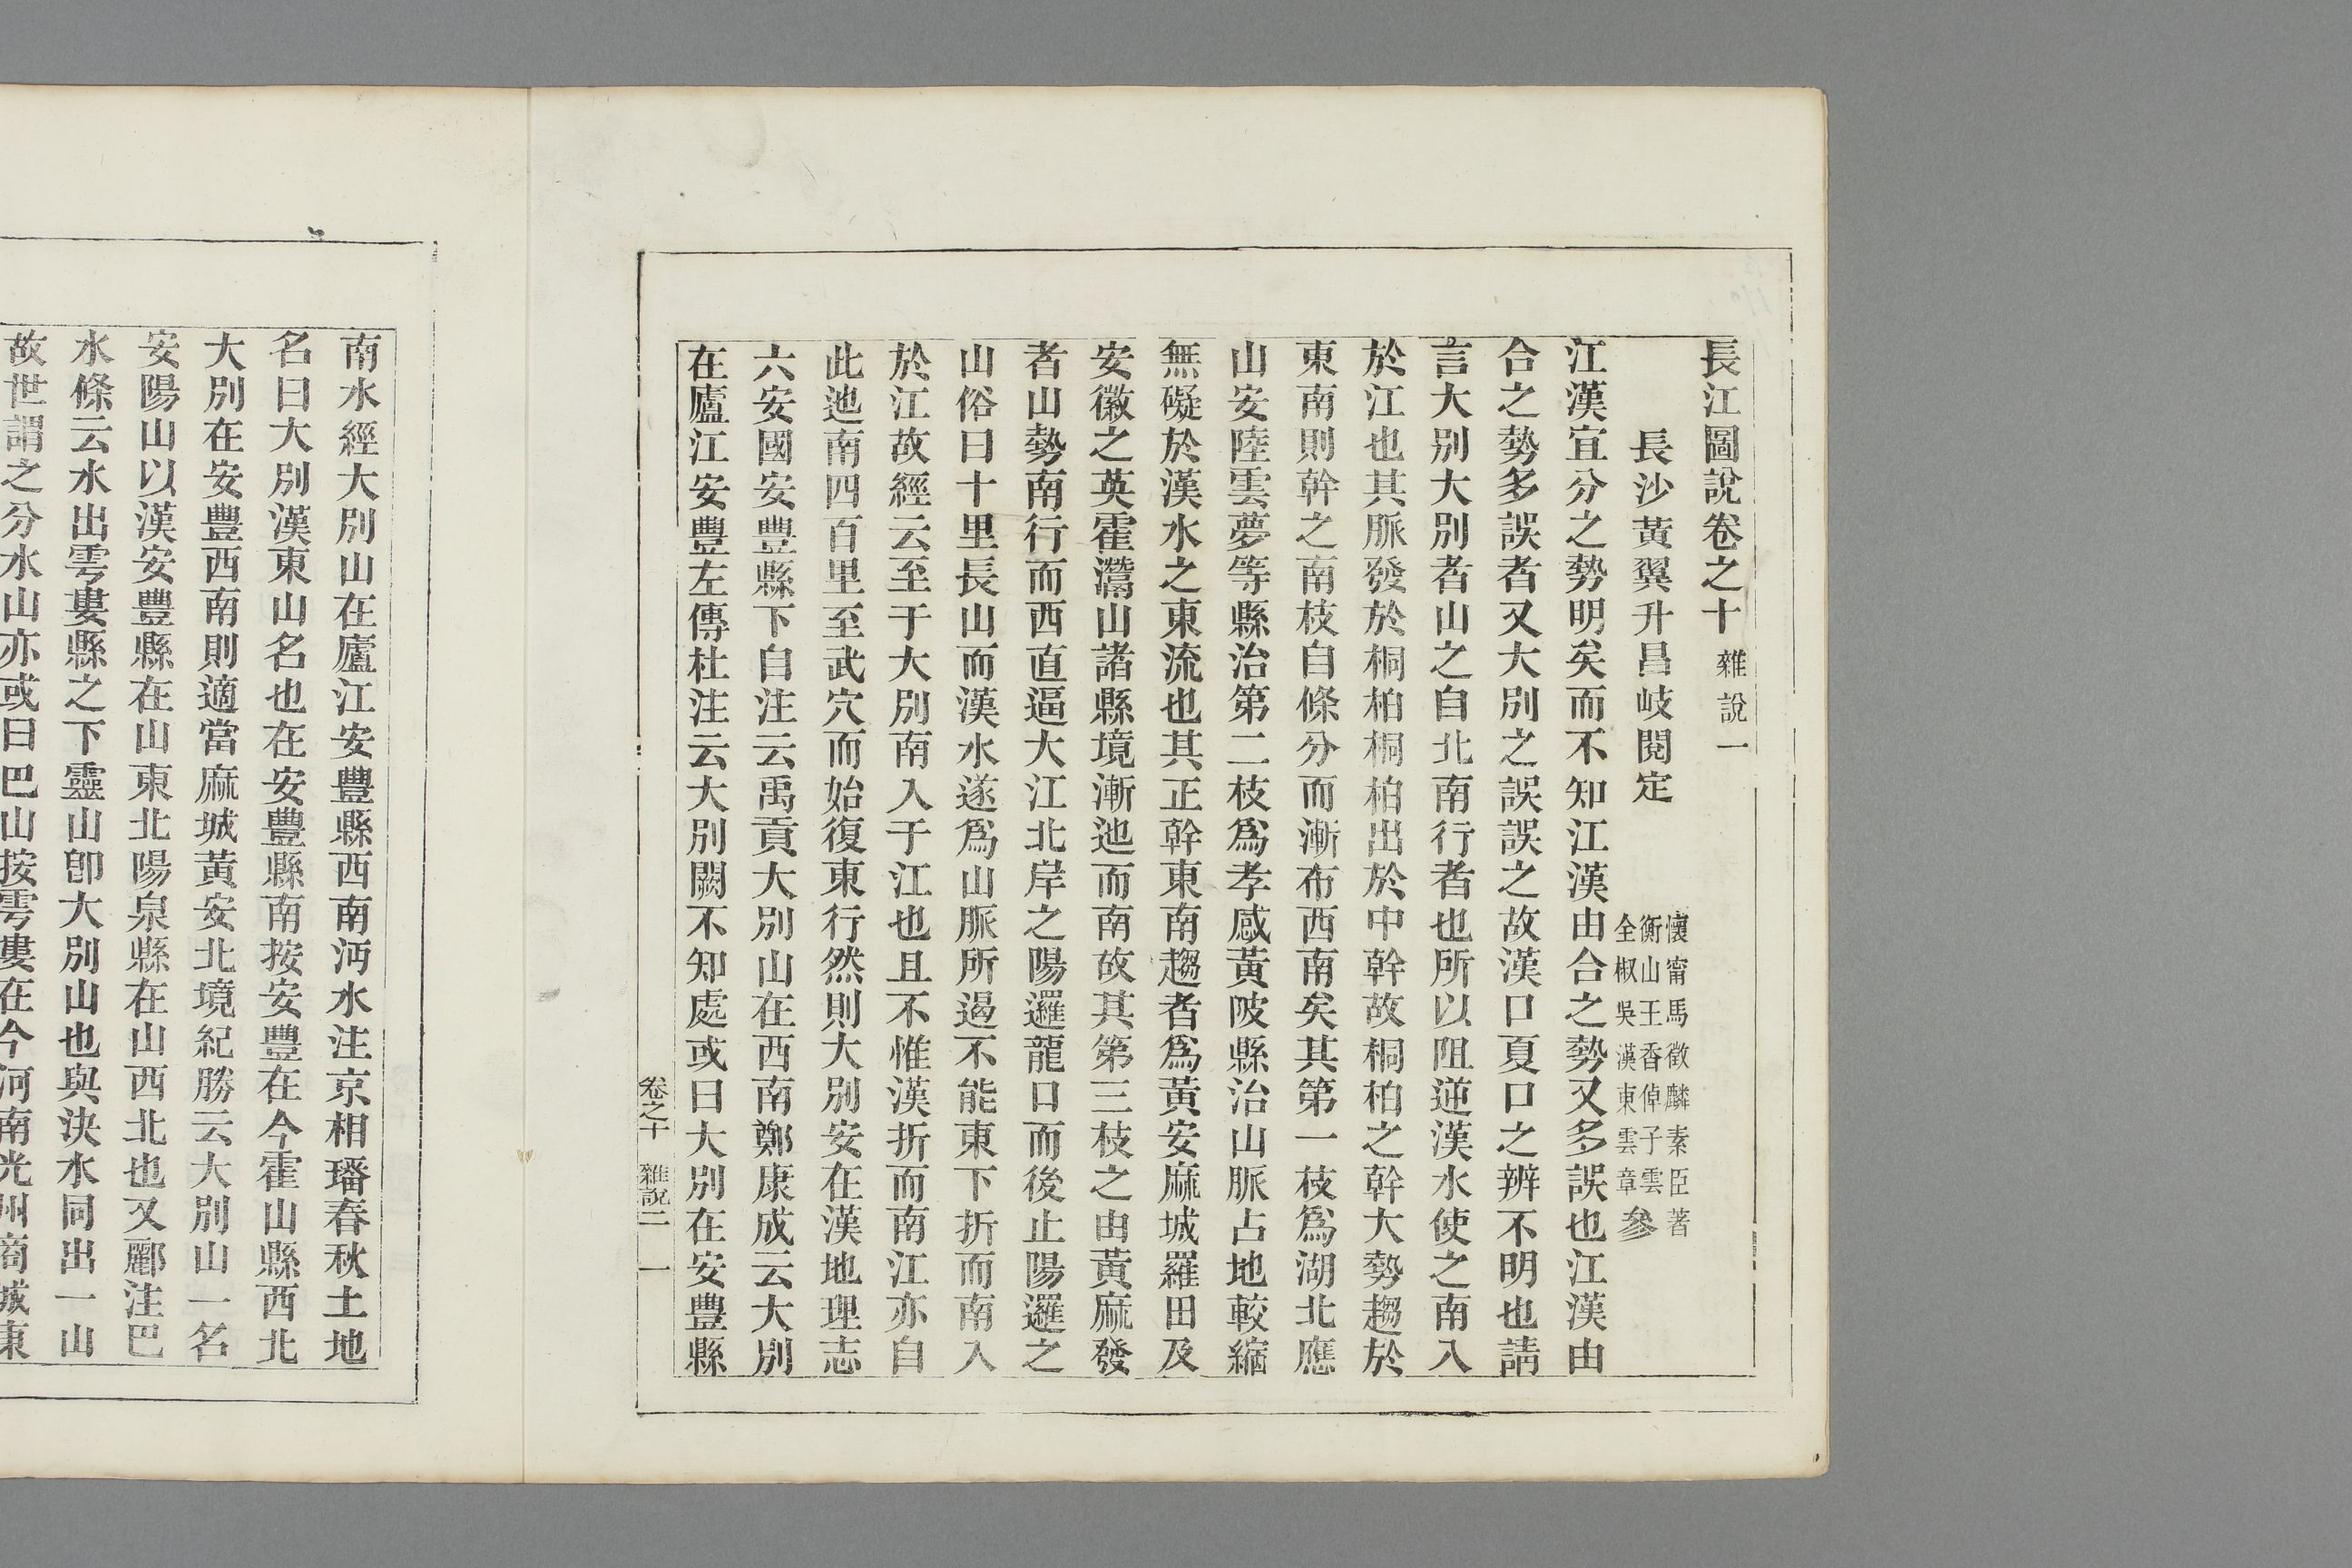 長江圖說卷之十 雜說一
長沙黃翼升昌岐閱定
懷甯馬徵麟素臣著
衡山王香倬子雲
全椒吳漢東雲章參
江漢宜分之勢明矣而不知江漢由合之勢又多誤也江漢由
合之勢多誤者又大別之誤誤之故漢口夏口之辨不明也請
言大別大別者山之自北南行者也所以阻逆漢水使之南入
於江也其脈發於桐柏桐柏出於中幹故桐柏之幹大勢趨於
東南則幹之南枝自條分而漸布西南矣其第一枝爲湖北應
山安陸雲夢等縣治第二枝爲孝感黃陂縣治山脈占地較縮
無礙於漢水之東流也其正幹東南趨者爲黃安麻城羅田及
安徽之英霍灊山諸縣境漸迆而南故其第三枝之由黃麻發
者山勢南行而西直逼大江北岸之陽邏龍口而後止陽邏之
山俗曰十里長山而漢水遂爲山脈所遏不能東下折而南入
於江故經云至于大別南入于江也且不惟漢折而南江亦自
此迆南四百里至武穴而始復東行然則大別安在漢地理志
六安國安豐縣下自注云禹貢大別山在西南鄭康成云大別
在廬江安豐左傳杜注云大別闕不知處或曰大別在安豐縣
卷之十 雜說二 一
南水經大別山在廬江安豐縣西南沔水注京相璠春秋土地
名曰大別漢東山名也在安豐縣南按安豐在今霍山縣西北
大別在安豐西南則適當麻城黃安北境紀勝云大別山一名
安陽山以漢安豐縣在山東北陽泉縣在山西北也又酈注巴
水條云水出雩婁縣之下靈山卽大別山也與決水同出一山
故世謂之分水山亦或曰巴山按雩婁在今河南光州商城東